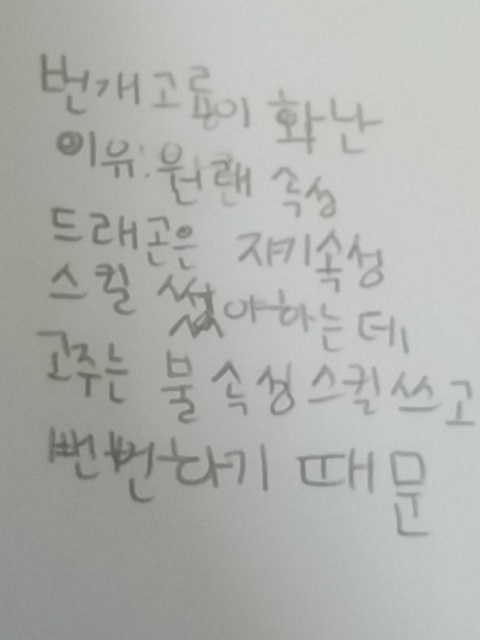 번개고룡이 화난
이유: 원랜 속성
드래곤은 쟈기속성
스킬 썼야하는데,
고주는 불속성스킬쓰고
뻔뻔하기 때문